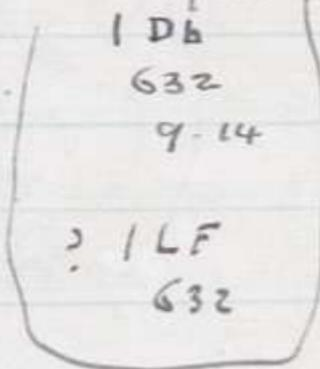 1 Db
632
9-14
? 1 LF
632